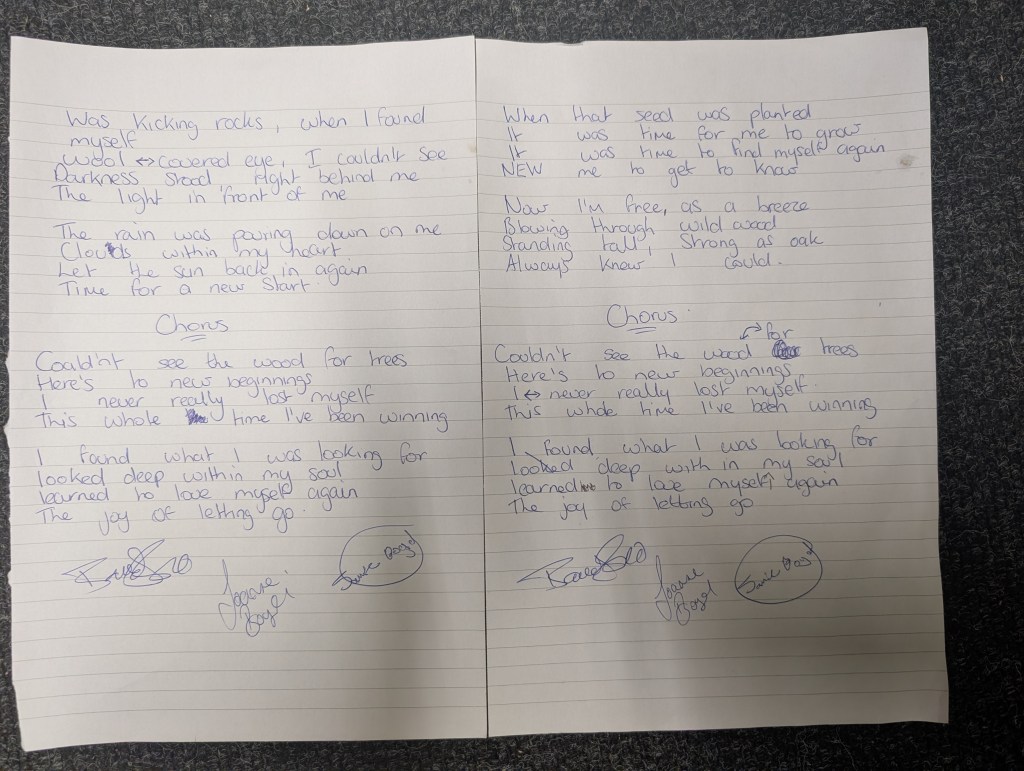 Was kicking rocks, when I found
myself
Wool ↔ covered eye, I couldn't see
Darkness stood, right behind me
The light in front of me
The rain was pouring down on me
Clouds within my heart
Let the sun back in again
Time for a new start
Chorus
Could'nt see the wood for trees
Here's to new beginnings
I never really lost myself
This whole time I've been winning
I found what I was looking for
looked deep within my soul
learned to love myself again
The joy of letting go.
When that seed was planted
It was time for me to grow
It was time to find myself again
NEW me to get to know
Now I'm free, as a breeze
Blowing through wild wood
Standing tall, Strong as oak
Always knew I could.
Chorus
for
Couldn't see the wood trees
Here's to new beginnings
I ↔ never really lost myself.
This whole time I've been winning
I found what I was looking for
looked deep with in my soul
learned to love myself again
The joy of letting go